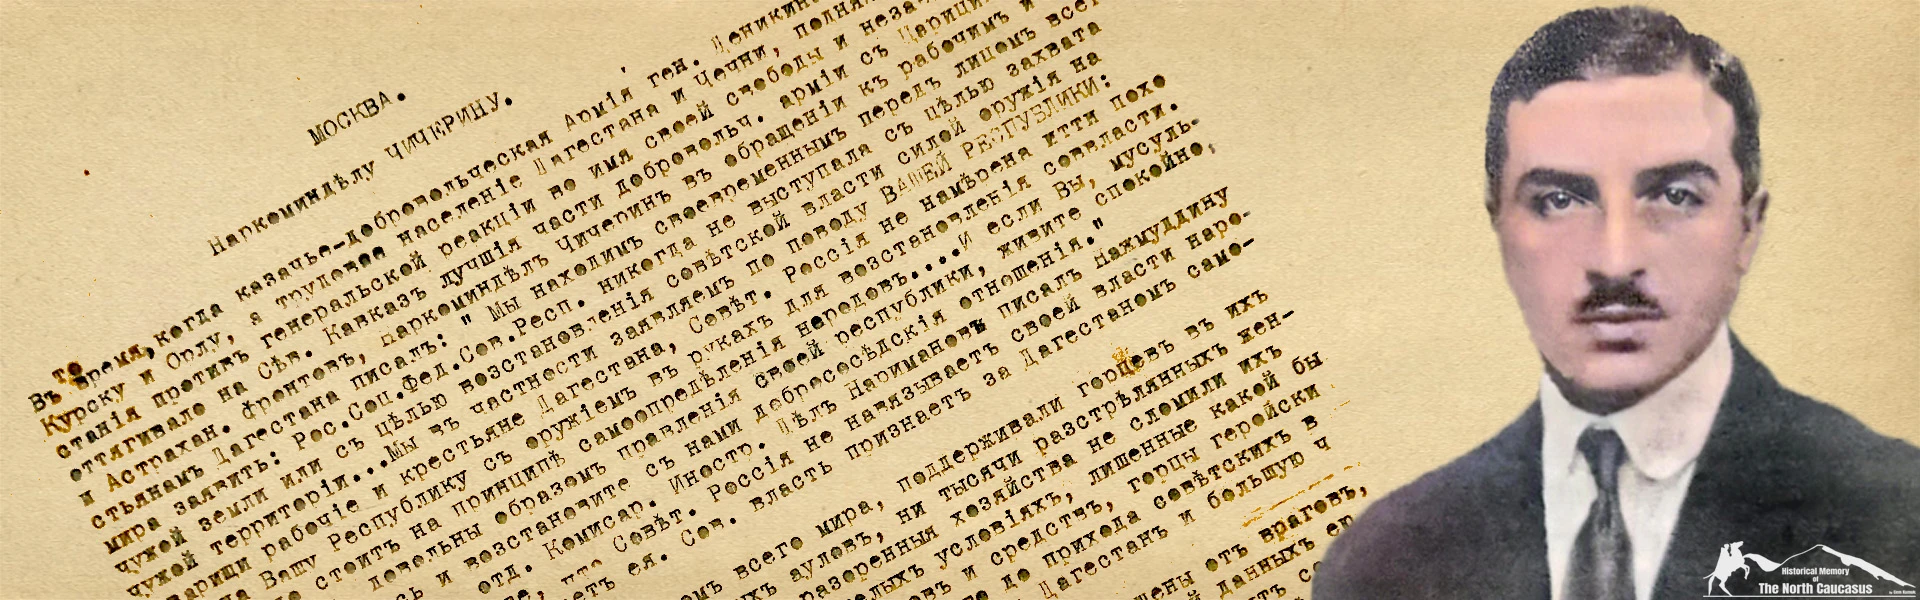 МОСКВА.
Наркоминдѣлу ЧИЧЕРИНУ.
Въ то время, когда казачье-добровольческая Армія ген. Деникина
Курску и Орлу, а трудовое населеніе Дагестана и Чечни,
станія противъ генеральской реакціи во имя своей свободы и
оттягивало на Сѣв. Кавказъ лучшія части добровольч. арміи съ
и Астрахан. фронтовъ, наркоминдѣлъ Чичеринъ въ обращеніи къ рабочимъ и
стьянамъ Дагестана писалъ: " Мы находимъ своевременнымъ передъ лицомъ всего
мира заявить: Рос.Соц.Фед.Сов.Респ. никогда не выступала съ цѣлью захвата
чужой земли или съ цѣлью возстановленія совѣтской власти силой оружія на
чужой территоріи...Мы въ частности заявляемъ по поводу ВАШЕЙ РЕСПУБЛИКИ:
варищи рабочіе и крестьяне Дагестана, Совѣт. Россія не намѣрена итти похо
на Вашу Республику съ оружіемъ въ рукахъ для возстановленія соввласти.
стоитъ на принципѣ самоопредѣленія народовъ....И если Вы, мусуль-
довольны образомъ правленія своей республики, живите спокойно,
сь и возстановите съ нами добрососѣдскія отношенія."
отд. Комисар. Иностр. Дѣлъ Наримановъ писалъ Нажмуддину
что Совѣт. Россія не навязываетъ своей власти наро-
етъ ея. Сов. власть признаетъ за Дагестаномъ само-
омъ всего мира, поддерживали горцевъ въ ихъ
ыхъ ауловъ, ни тысячи разстрѣлянныхъ жен-
разоренныя хозяйства не сломили ихъ
елыхъ условіяхъ, лишенные какой бы
овъ и средствъ, горцы геройски
до прихода совѣтскихъ в
Дагестанъ и большую ч
щены отъ враговъ,
данныхъ
Historical Memory
of
The North Caucasus